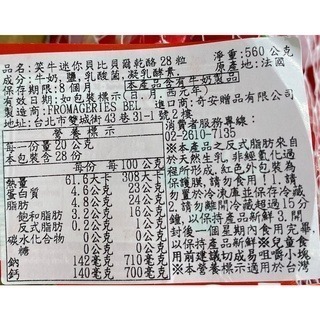 品名：笑牛迷你貝比貝爾乾酪28粒
淨重：560公克
成分：牛奶,鹽,乳酸菌,凝乳酵素,
原產地：法國
保存期限：8個月
本產品含有牛奶製品
有效日期：如包裝標示(日.月.西元年)
製造商：FROMAGERIES BEL
進口商：奇安贈品有限公司
地址：台北市雙城街43巷31-1號2樓
消費者服務專線：
02-2610-7135
營養標示
每一份量20公克
本包裝含28份
每份 每100公克
熱量 61.6大卡 308大卡
蛋白質 4.6公克 23公克
脂肪 4.8公克 24公克
飽和脂肪 3.2公克 16公克
反式脂肪 0.2公克 1公克
碳水化合物 0公克 0公克
糖 0公克 0公克
鈉 142毫克 710毫克
鈣 140毫克 700毫克
※本產品之反式脂肪來自
於天然生乳，非經氫化過
程所形成，紅色外包裝為
保護膜，請勿食用!1.請
勿置於冷凍庫並保存冷藏，
請勿離開冷藏超過15分
鐘，以保持產品新鮮3.開
封後一個星期內食用完畢，
以保持產品新鮮※兒童食
用前建議切成易咀嚼小塊
※本營養標示適用於台灣